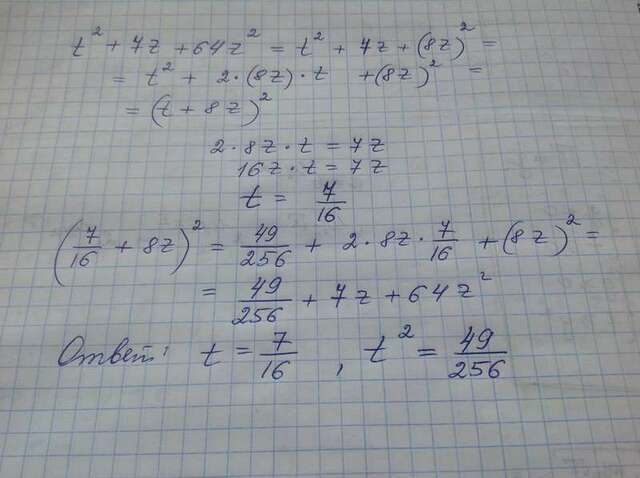 t² + 7z + 64z² = t² + 7z + (8z)² =
= t² + 2·(8z)·t + (8z)² =
= (t + 8z)²
2·8z·t = 7z
16z·t = 7z
t = 7/16
(7/16 + 8z)² = 49/256 + 2·8z·7/16 + (8z)² =
= 49/256 + 7z + 64z²
Ответ: t = 7/16 , t² = 49/256